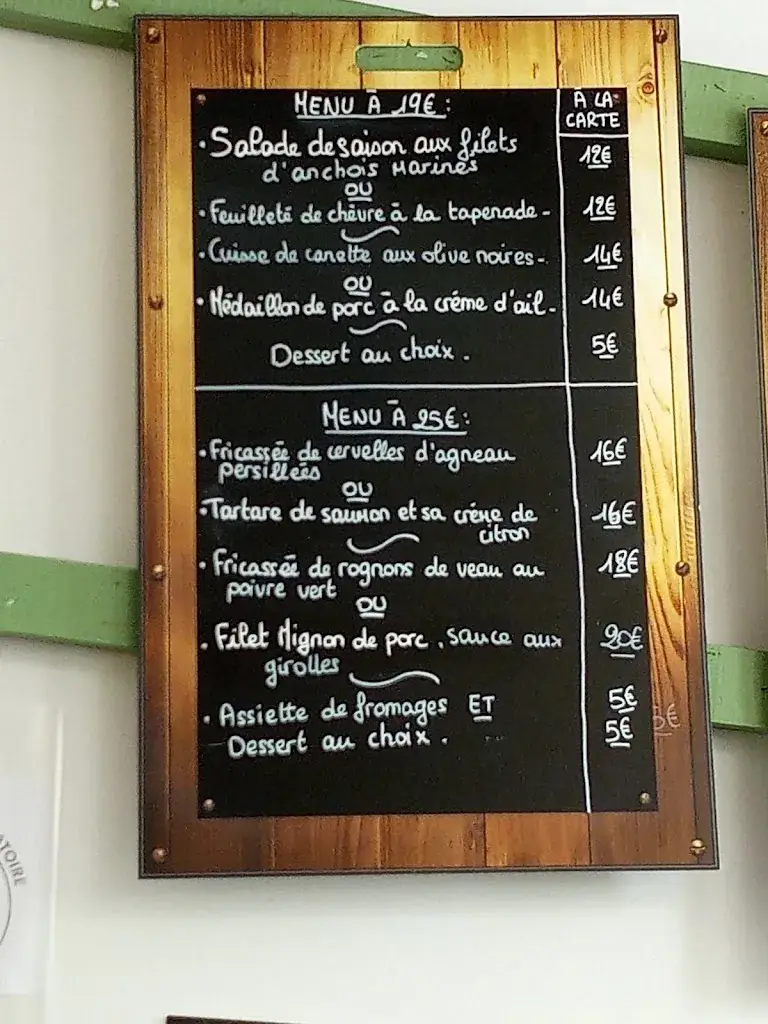 MENU À 19€ :
À LA
CARTE
• Salade de saison aux filets
d'anchois Marinés
12€
OU
• Feuilleté de chèvre à la tapenade -
12€
• Cuisse de canette aux olive noires -.
14€
OU
• Médaillon de porc à la créme d'ail -
14€
Dessert au choix .
5€
MENU À 25€ :
• Fricassée de cervelles d'agneau
persillées
16€
OU
• Tartare de saumon et sa crème de
citron
16€
• Fricassée de rognons de veau au
poivre vert
18€
OU
. Filet Mignon de porc , sauce aux
girolles
20€
• Assiette de fromages ET
5€
Dessert au choix .
5€
5€
ATOIRE